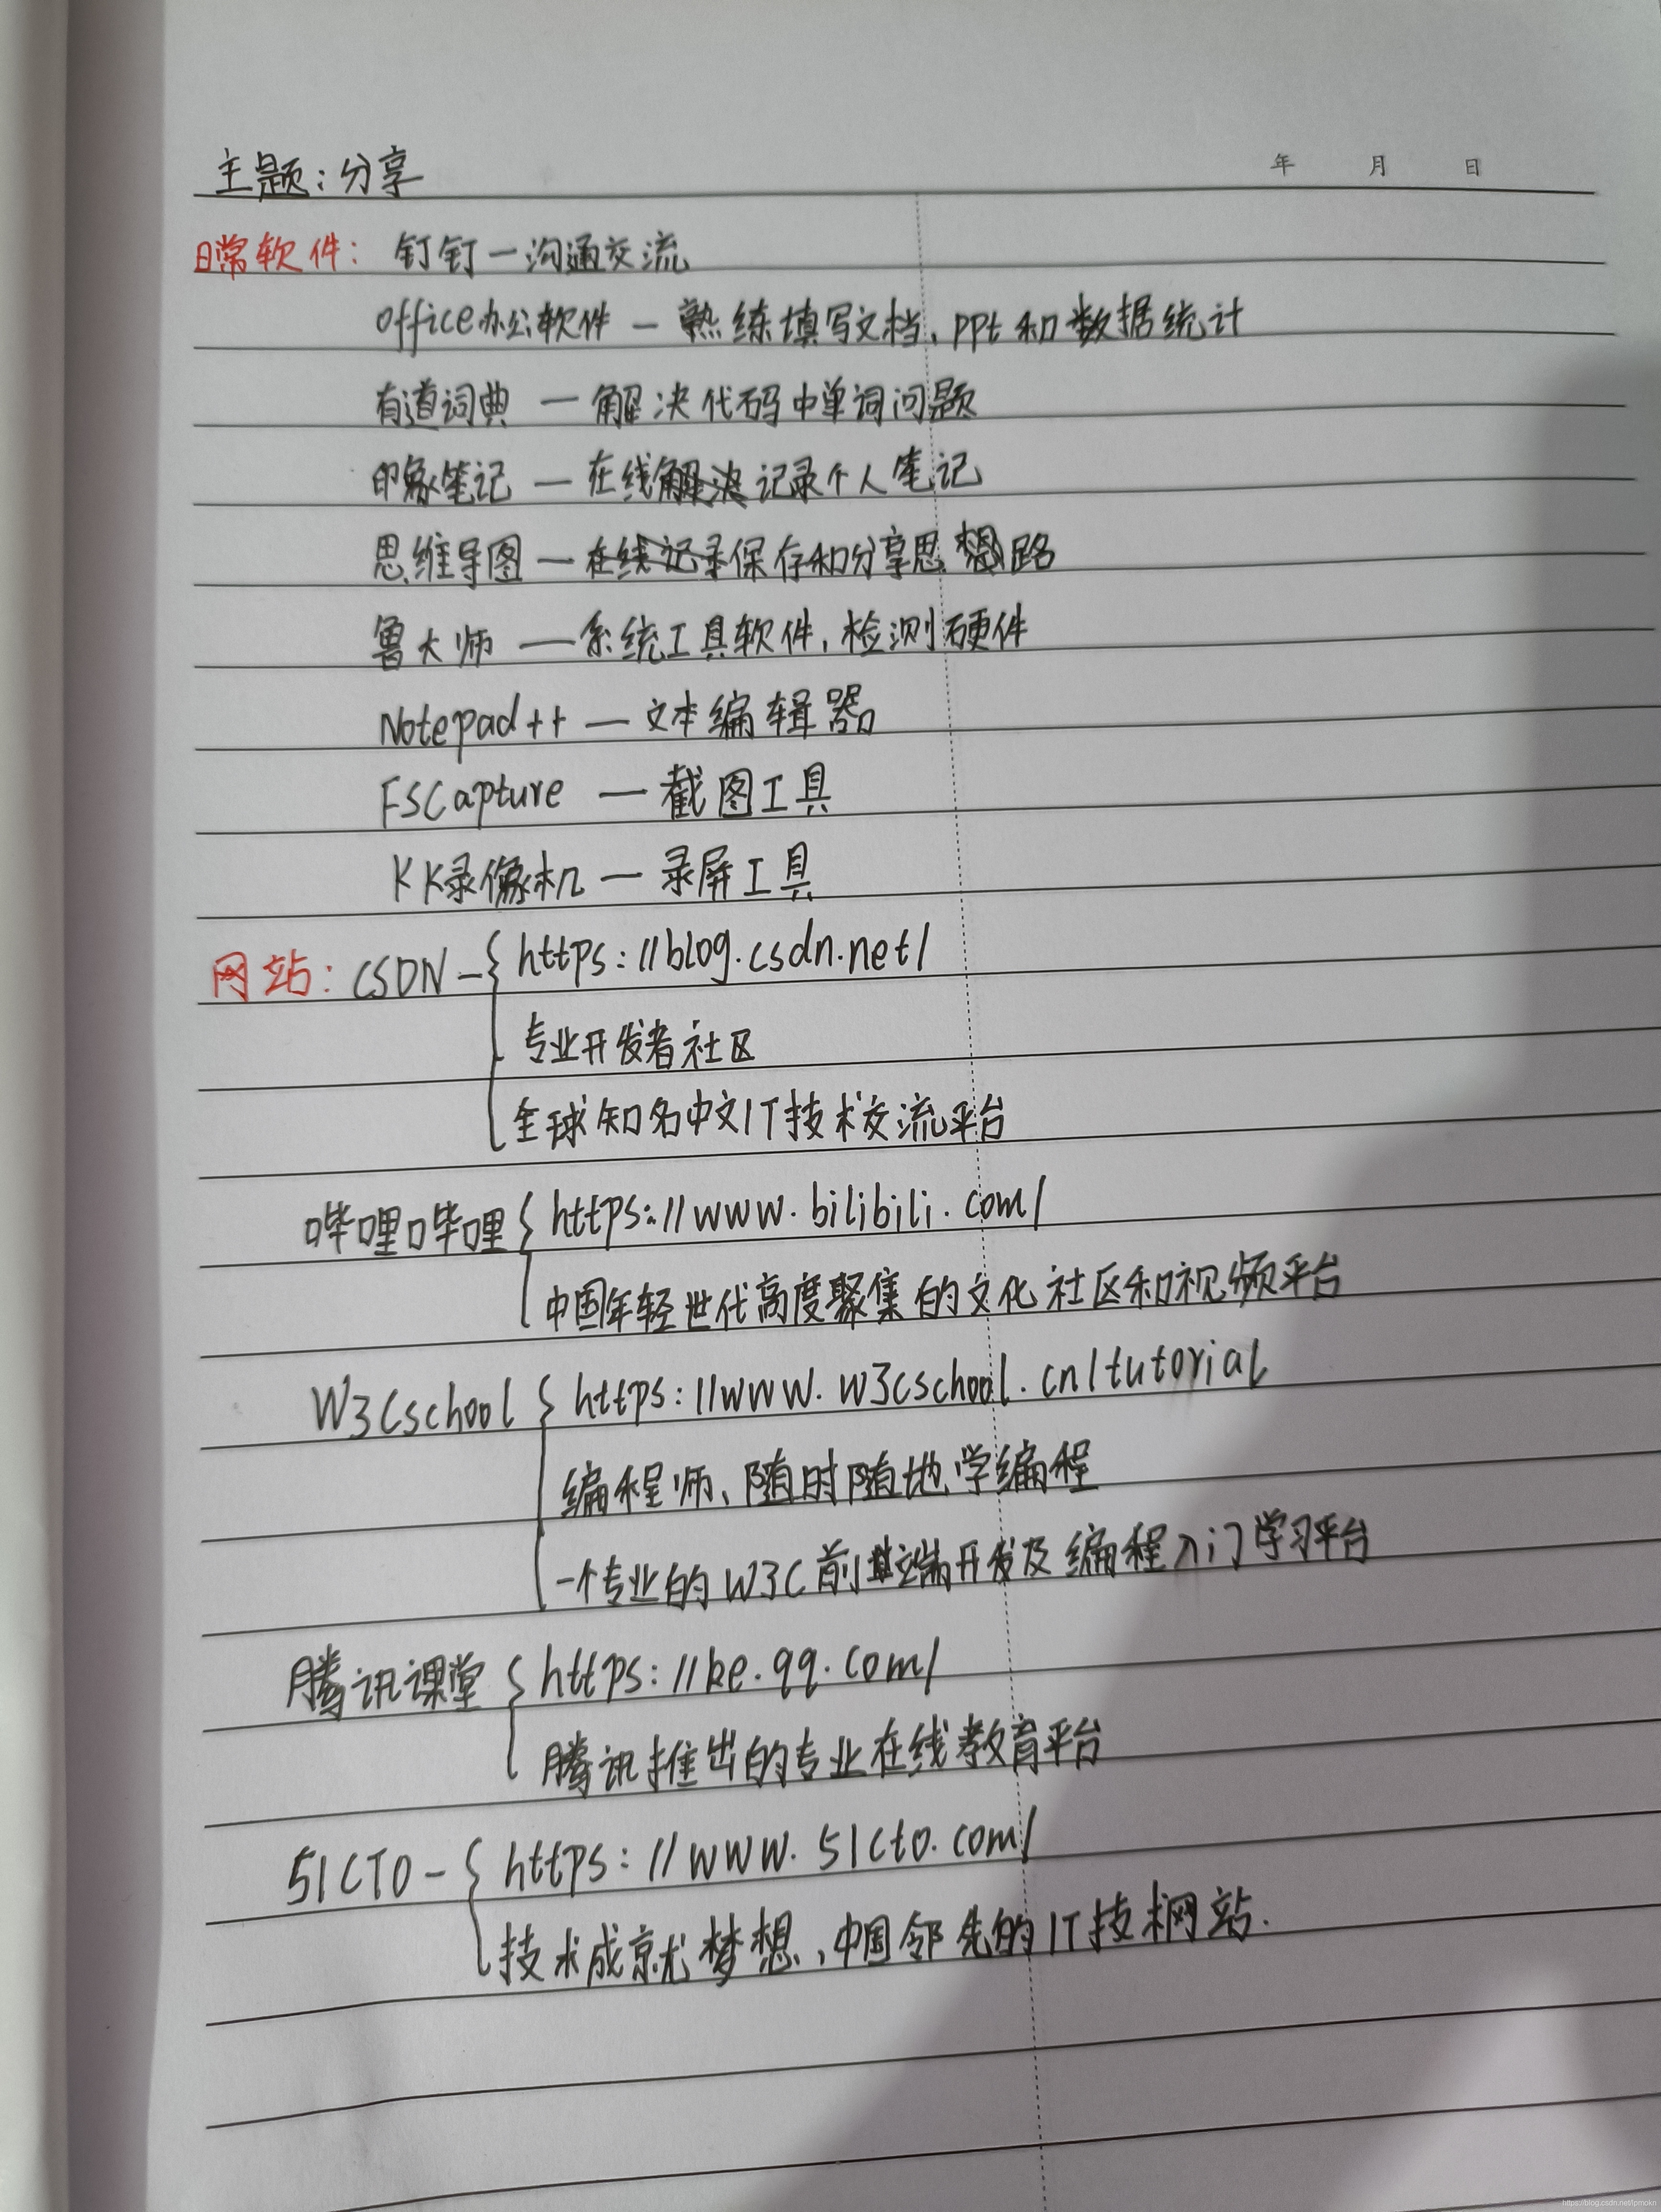 主题:分享 年 月 日
日常软件: 钉钉一沟通交流
office办公软件 — 熟练填写文档、ppt和数据统计
有道词典 — 解决代码中单词问题
印象笔记 — 在线解决记录个人笔记
思维导图 — 在线记录保存和分享思想路
鲁大师 — 系统工具软件,检测硬件
Notepad++ — 文本编辑器
FSCapture — 截图工具
KK录像机 — 录屏工具
网站: CSDN - { https://blog.csdn.net/
专业开发者社区
全球知名中文IT技术交流平台
哔哩哔哩 { https://www.bilibili.com/
中国年轻世代高度聚集的文化社区和视频平台
W3Cschool { https://www.w3cschool.cn/tutorial
编程师、随时随地学编程
一个专业的W3C前端开发及编程入门学习平台
腾讯课堂 { https://ke.qq.com/
腾讯推出的专业在线教育平台
51CTO - { https://www.51cto.com/
技术成就梦想、中国邻先的IT技术网站.
https://blog.csdn.net/lpmokn